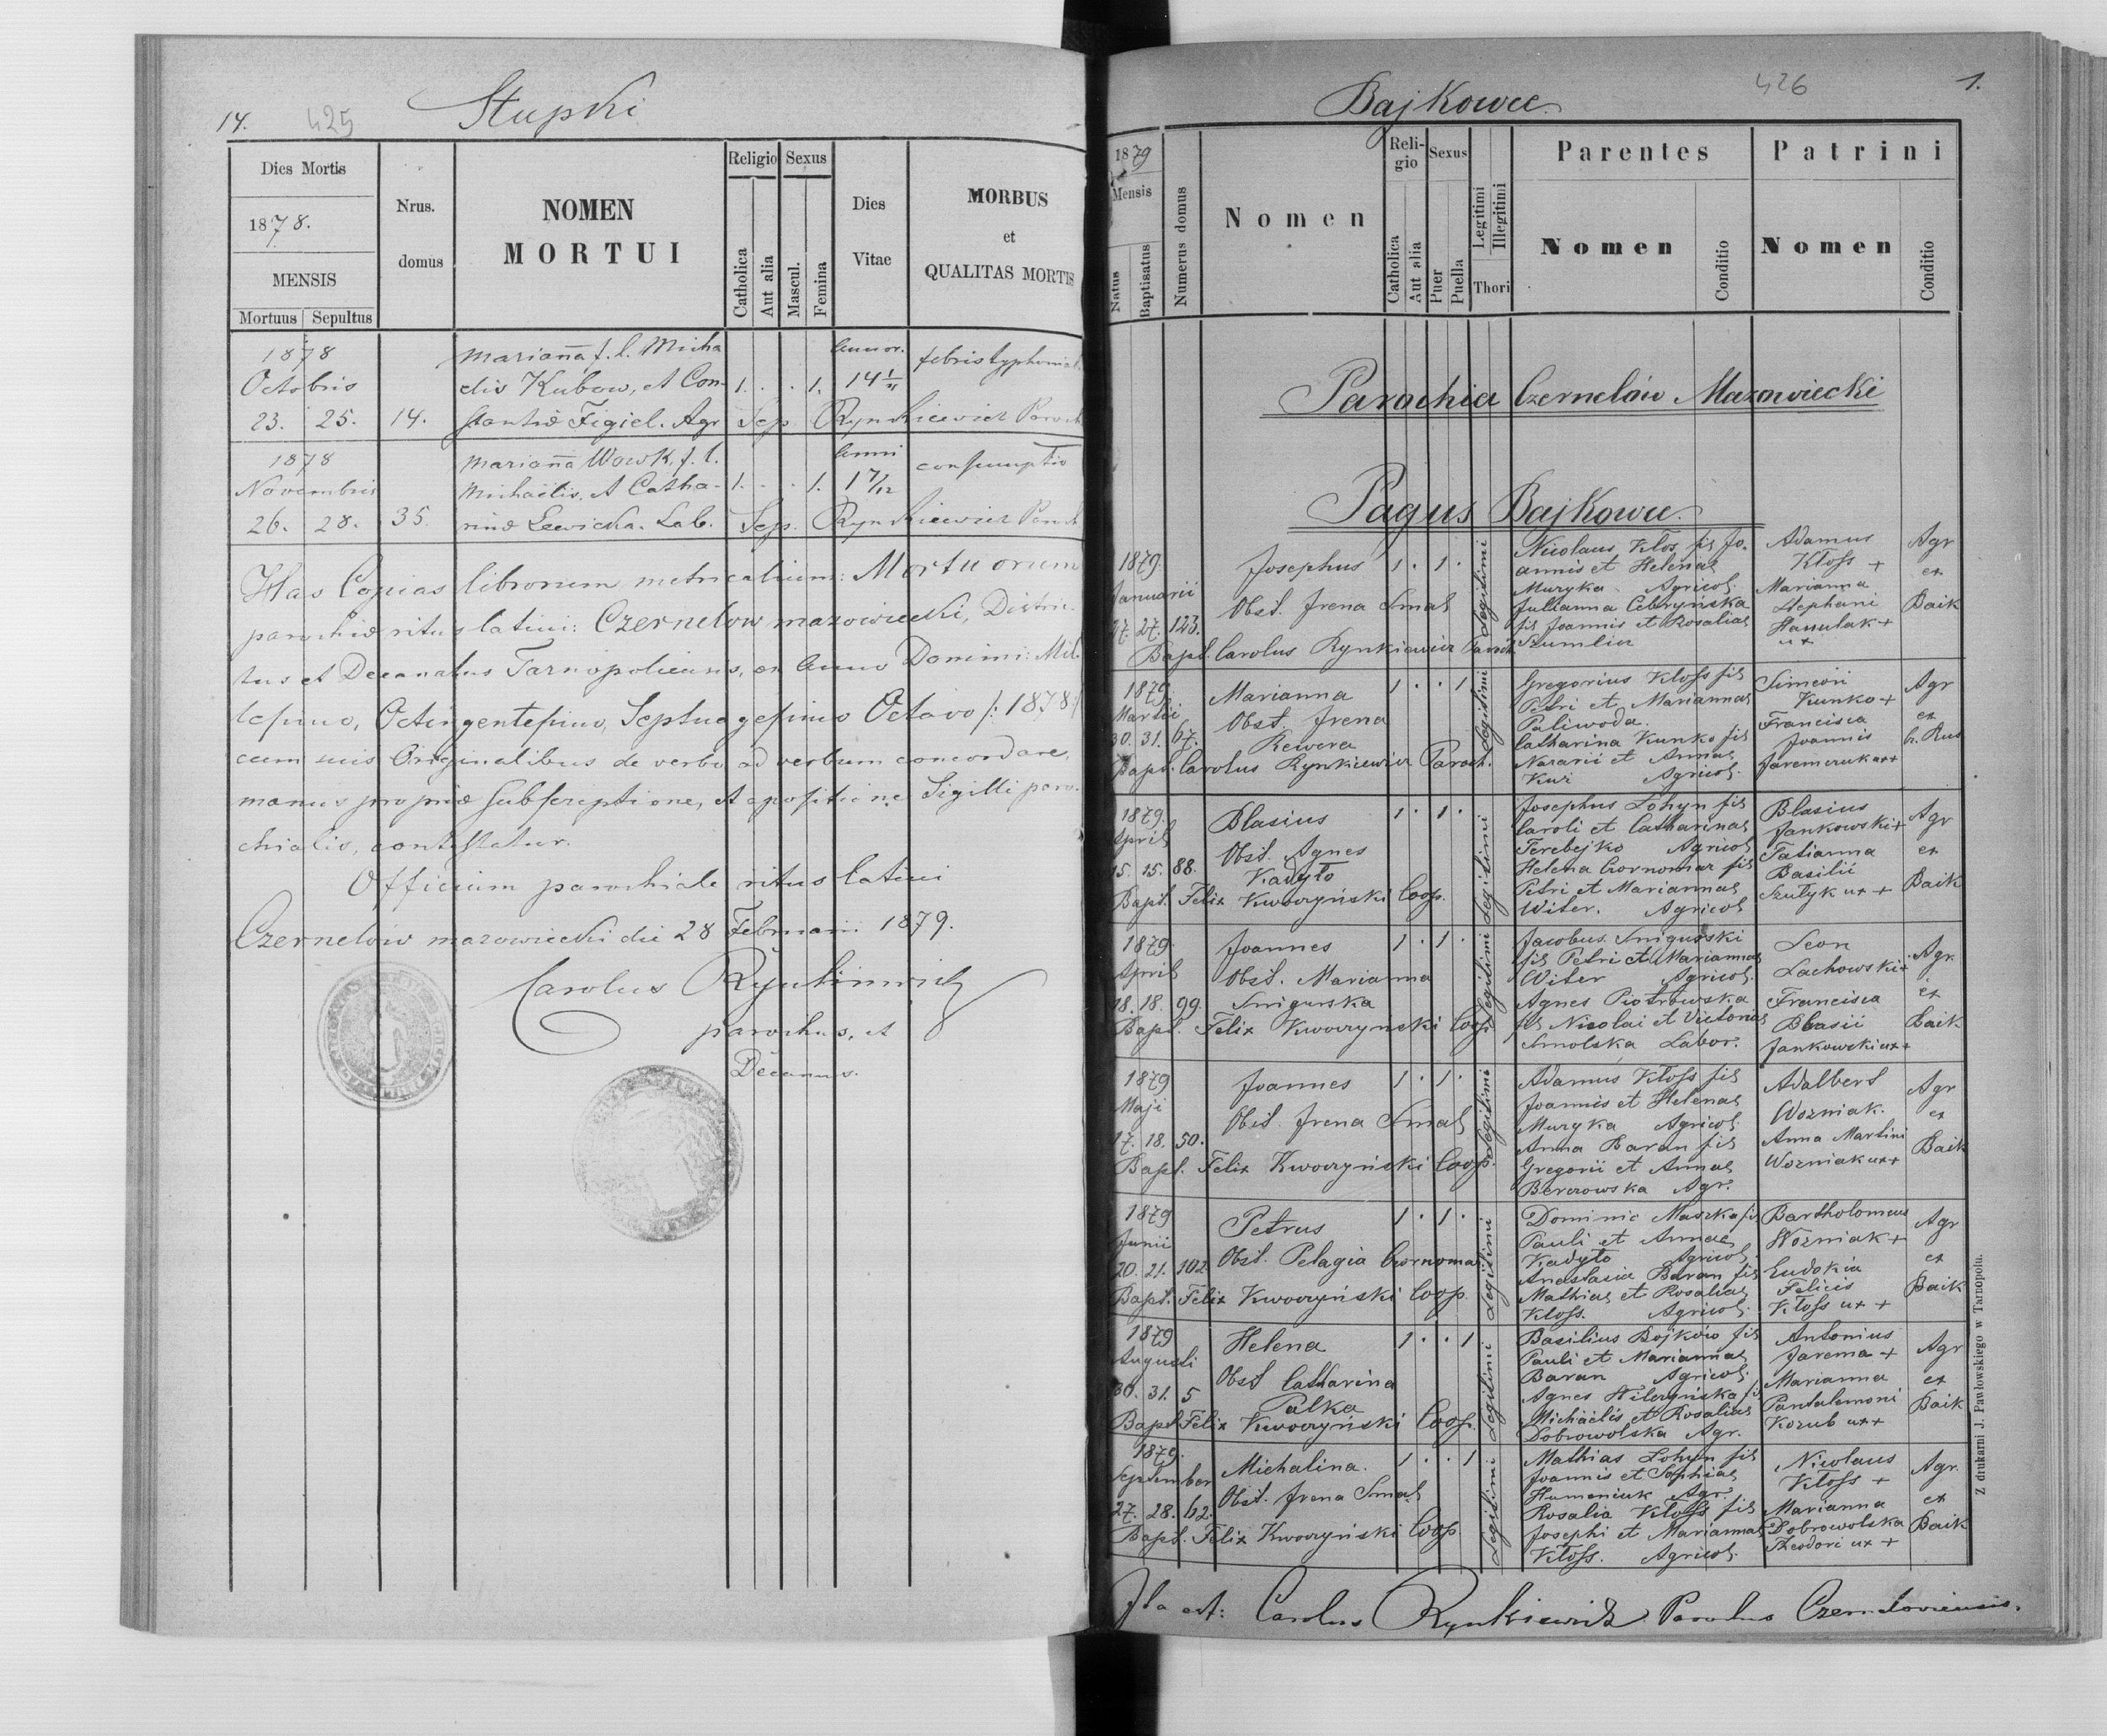 14. 425 Stupki
Dies Mortis
1878.
MENSIS
Mortuus Sepultus
Nrus.
domus
NOMEN
MORTUI
Religio Sexus
Catholica
Aut alia
Mascul.
Femina
Dies
Vitae
MORBUS
et
QUALITAS MORTIS
1878
Octobris
23. 25. 14.
Marianna f. l. Micha
elis Kubow, et Con-
stantiæ Figiel. Agr
1. . . 1.
Annor.
14
febris typhonica
Sep. Rynkiewicz Paroch
1878
Novembris
26. 28. 35.
Marianna Wowk, f. l.
Michaëlis, et Catha-
rinæ Lewicka. Lab.
1. . . 1.
Anni
1 7/12
consumptio
Sep. Rynkiewicz Paroch
Has Copias librorum metricalium: Mortuorum
parochiæ ritus latini: Czernelow mazowiecki, Distric-
tus et Decanatus Tarnopoliensis, ex Anno Domini: Mil-
lesimo, Octingentesimo, Septuagesimo Octavo /: 1878 :/
cum suis Originalibus de verbo ad verbum concordare,
manus propriæ subscriptione, et apositione Sigilli paro-
chialis, contestatur.
Officium parochiale ritus latini
Czernelów mazowiecki die 28 Februarii 1879.
Carolus Rynkiewicz
parochus, et
Decanus.
Bajkowce 426 1.
1879
Mensis
Natus
Baptisatus
Numerus domus
Nomen
Reli-
gio
Sexus
Catholica
Aut alia
Puer
Puella
Legitimi
Illegitimi
Thori
Parentes
Nomen
Conditio
Patrini
Nomen
Conditio
Parochia Czernelów Mazowiecki
Pagus Bajkowce.
1879.
Januarii
27. 27. 123.
Josephus
Obst. Irena Smal
Bapt. Carolus Rynkiewicz Paroch.
1 . 1 .
Legitimi
Nicolaus Klos fil Jo-
annis et Helenae
Muzyka Agricol.
Julianna Cebryńska
fil Joannis et Rosaliae
Szumlia
Adamus
Kloss +
Marianna
Stephani
Hanulak +
ux
Agr
ex
Baik
1879.
Martii
30. 31. 67.
Marianna
Obst. Irena
Rewera
Bapt. Carolus Rynkiewicz Paroch.
1 . . 1
Legitimi
Gregorius Kloss fil
Petri et Mariannae
Paliwoda.
Catharina Kunko fil
Nazarii et Annae
Kuz Agricol.
Simeon
Kunko +
Francisca
Joannis
Jaremczuk ux +
Agr
ex
b. Rus
1879.
April
15. 15. 88.
Blasius
Obst. Agnes
Kadyło
Bapt. Felix Kwoczyński Coop.
1 . 1 .
Legitimi
Josephus Łohyn fil
Caroli et Catharinae
Terebejko Agricol
Helena Czornomaz fil
Petri et Mariannae
Witer. Agricol
Blasius
Jankowski +
Tatianna
Basilii
Szulyk ux +
Agr
ex
Baik
1879.
April
18. 18. 99.
Joannes
Obst. Marianna
Snigurska
Bapt. Felix Kwoczyński Coop.
1 . 1 .
Legitimi
Jacobus Snigurski
fil Petri et Mariannae
Witer Agricol.
Agnes Piotrowska
fil Nicolai et Victoriae
Smolska Labor.
Leon
Lachowski +
Francisca
Blasii
Jankowski ux +
Agr.
ex
Baik
1879
Maji
17. 18. 50.
Joannes
Obst. Irena Smal
Bapt. Felix Kwoczyński Coop.
1 . 1 .
Legitimi
Adamus Kloss fil
Joannis et Helenae
Muzyka Agricol.
Anna Baran fil
Gregorii et Annae
Berezowska Agr.
Adalbert
Wozniak.
Anna Martini
Wozniak ux +
Agr
ex
Baik
1879
Junii
20. 21. 102.
Petrus
Obst. Pelagia Czornomaz
Bapt. Felix Kwoczyński Coop.
1 . 1 .
Legitimi
Dominic Maszka fil
Pauli et Annae
Kadyło Agricol.
Anastasia Baran fil
Mathiae et Rosaliae
Kloss. Agricol.
Bartholomeus
Wozniak +
Eudokia
Felicis
Kloss ux +
Agr
ex
Baik
1879
Augusti
30. 31. 5
Helena
Obst Catharina
Pałka
Bapt Felix Kwoczyński Coop.
1 . . 1
Legitimi
Basilius Bojków fil
Pauli et Mariannae
Baran Agricol.
Agnes Hilczyńska fil
Michäelis et Rosaliae
Dobrowolska Agr.
Antonius
Jarema +
Marianna
Pantalemoni
Kozub ux +
Agr
ex
Baik
1879.
September
27. 28. 62.
Michalina.
Obst. Irena Smal
Bapt. Felix Kwoczyński Coop
1 . . 1
Legitimi
Mathias Łohyn fil
Joannis et Sophiae
Humeniuk Agr.
Rosalia Kloss fil
Josephi et Mariannae
Kloss. Agricol.
Nicolaus
Kloss +
Marianna
Dobrowolska
Theodori ux +
Agr.
ex
Baik
Ita est: Carolus Rynkiewicz Parochus Czerneloviensis.
Z drukarni J. Pawłowskiego w Tarnopolu.